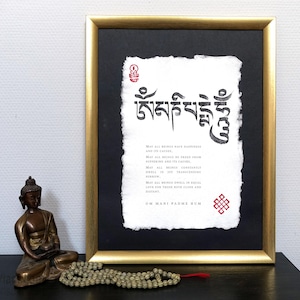 ༀམཎིཔདྨེཧཱུྃ
MAY ALL BEINGS HAVE HAPPINESS
AND ITS CAUSES.
MAY ALL BEINGS BE FREED FROM
SUFFERING AND ITS CAUSES.
MAY ALL BEINGS CONSTANTLY
DWELL IN JOY TRANSCENDING
SORROW.
MAY ALL BEINGS DWELL IN EQUAL
LOVE FOR THOSE BOTH CLOSE AND
DISTANT.
OM MANI PADME HUM